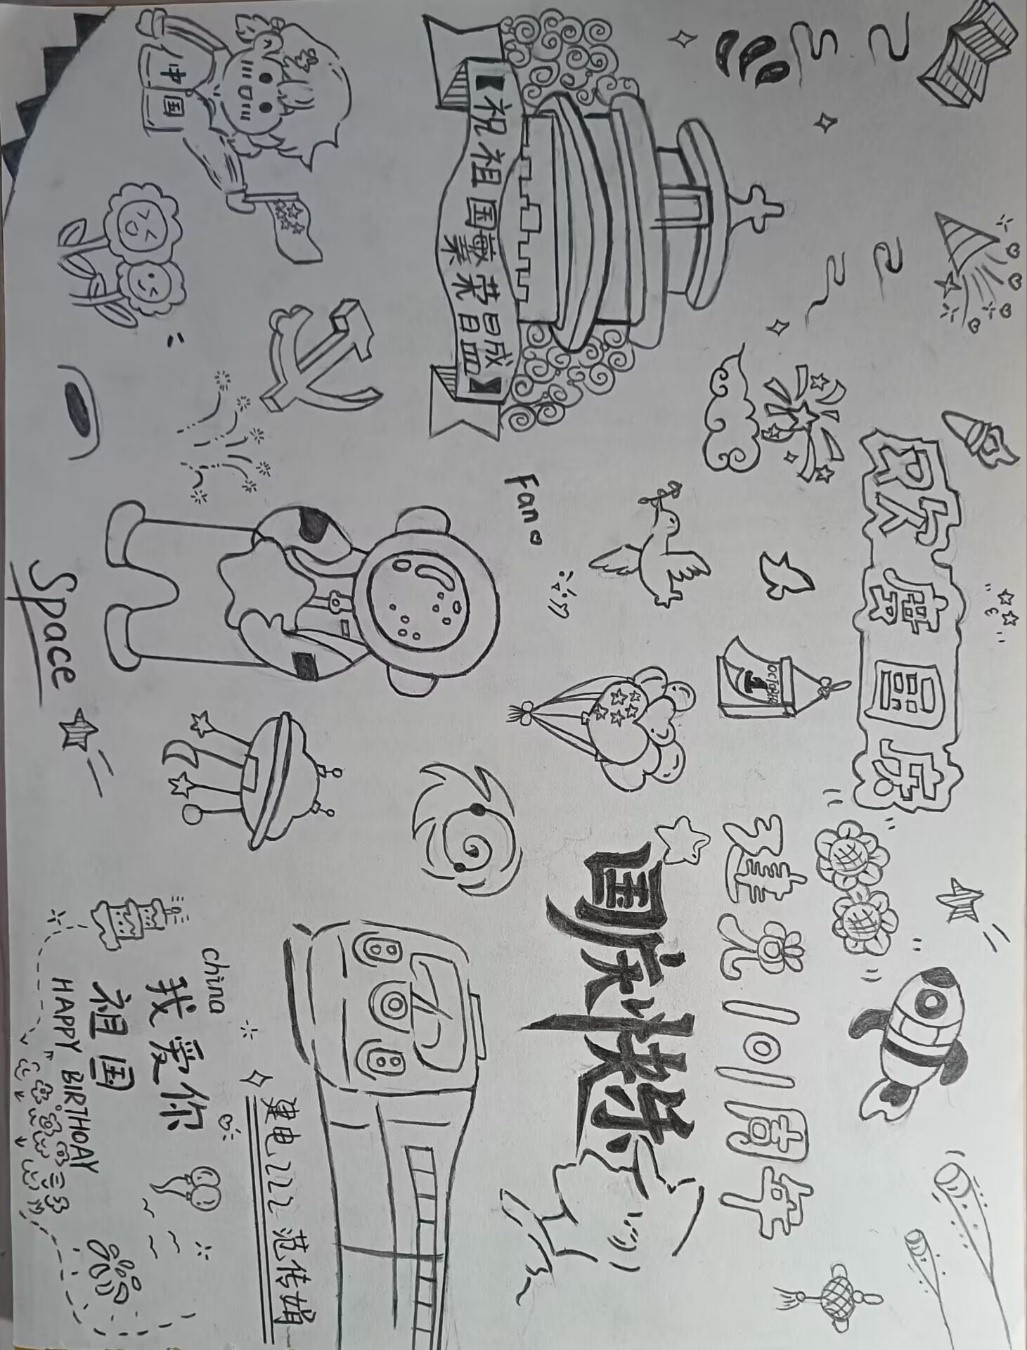 欢度国庆
建党101周年
国庆快乐
OCTOBER
1
【祝祖国繁荣昌盛】
【祖国繁荣昌盛】
中国
Fan
Space
china
我爱你
祖国
HAPPY BIRTHDAY
建电222 范传娟